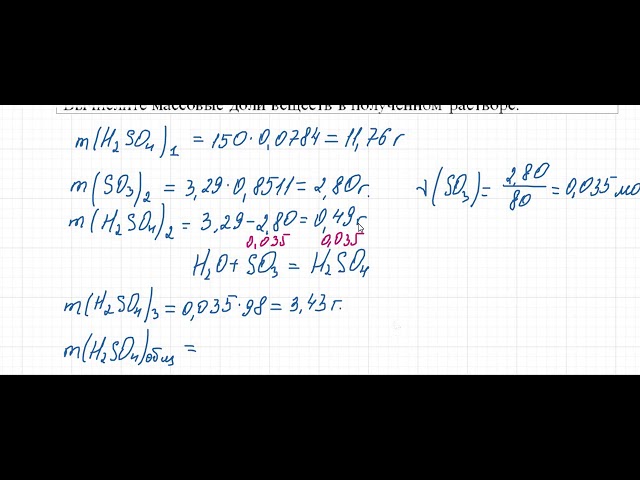 Вычислите массовые доли веществ в полученном растворе.
m(H₂SO₄)₁ = 150·0,0784 = 11,76 г
m(SO₃)₂ = 3,29·0,8511 = 2,80 г. ν(SO₃) = 2,80/80 = 0,035 мо
m(H₂SO₄)₂ = 3,29 – 2,80 = 0,49 г
0,035 0,035
H₂O + SO₃ = H₂SO₄
m(H₂SO₄)₃ = 0,035·98 = 3,43 г.
m(H₂SO₄)общ =